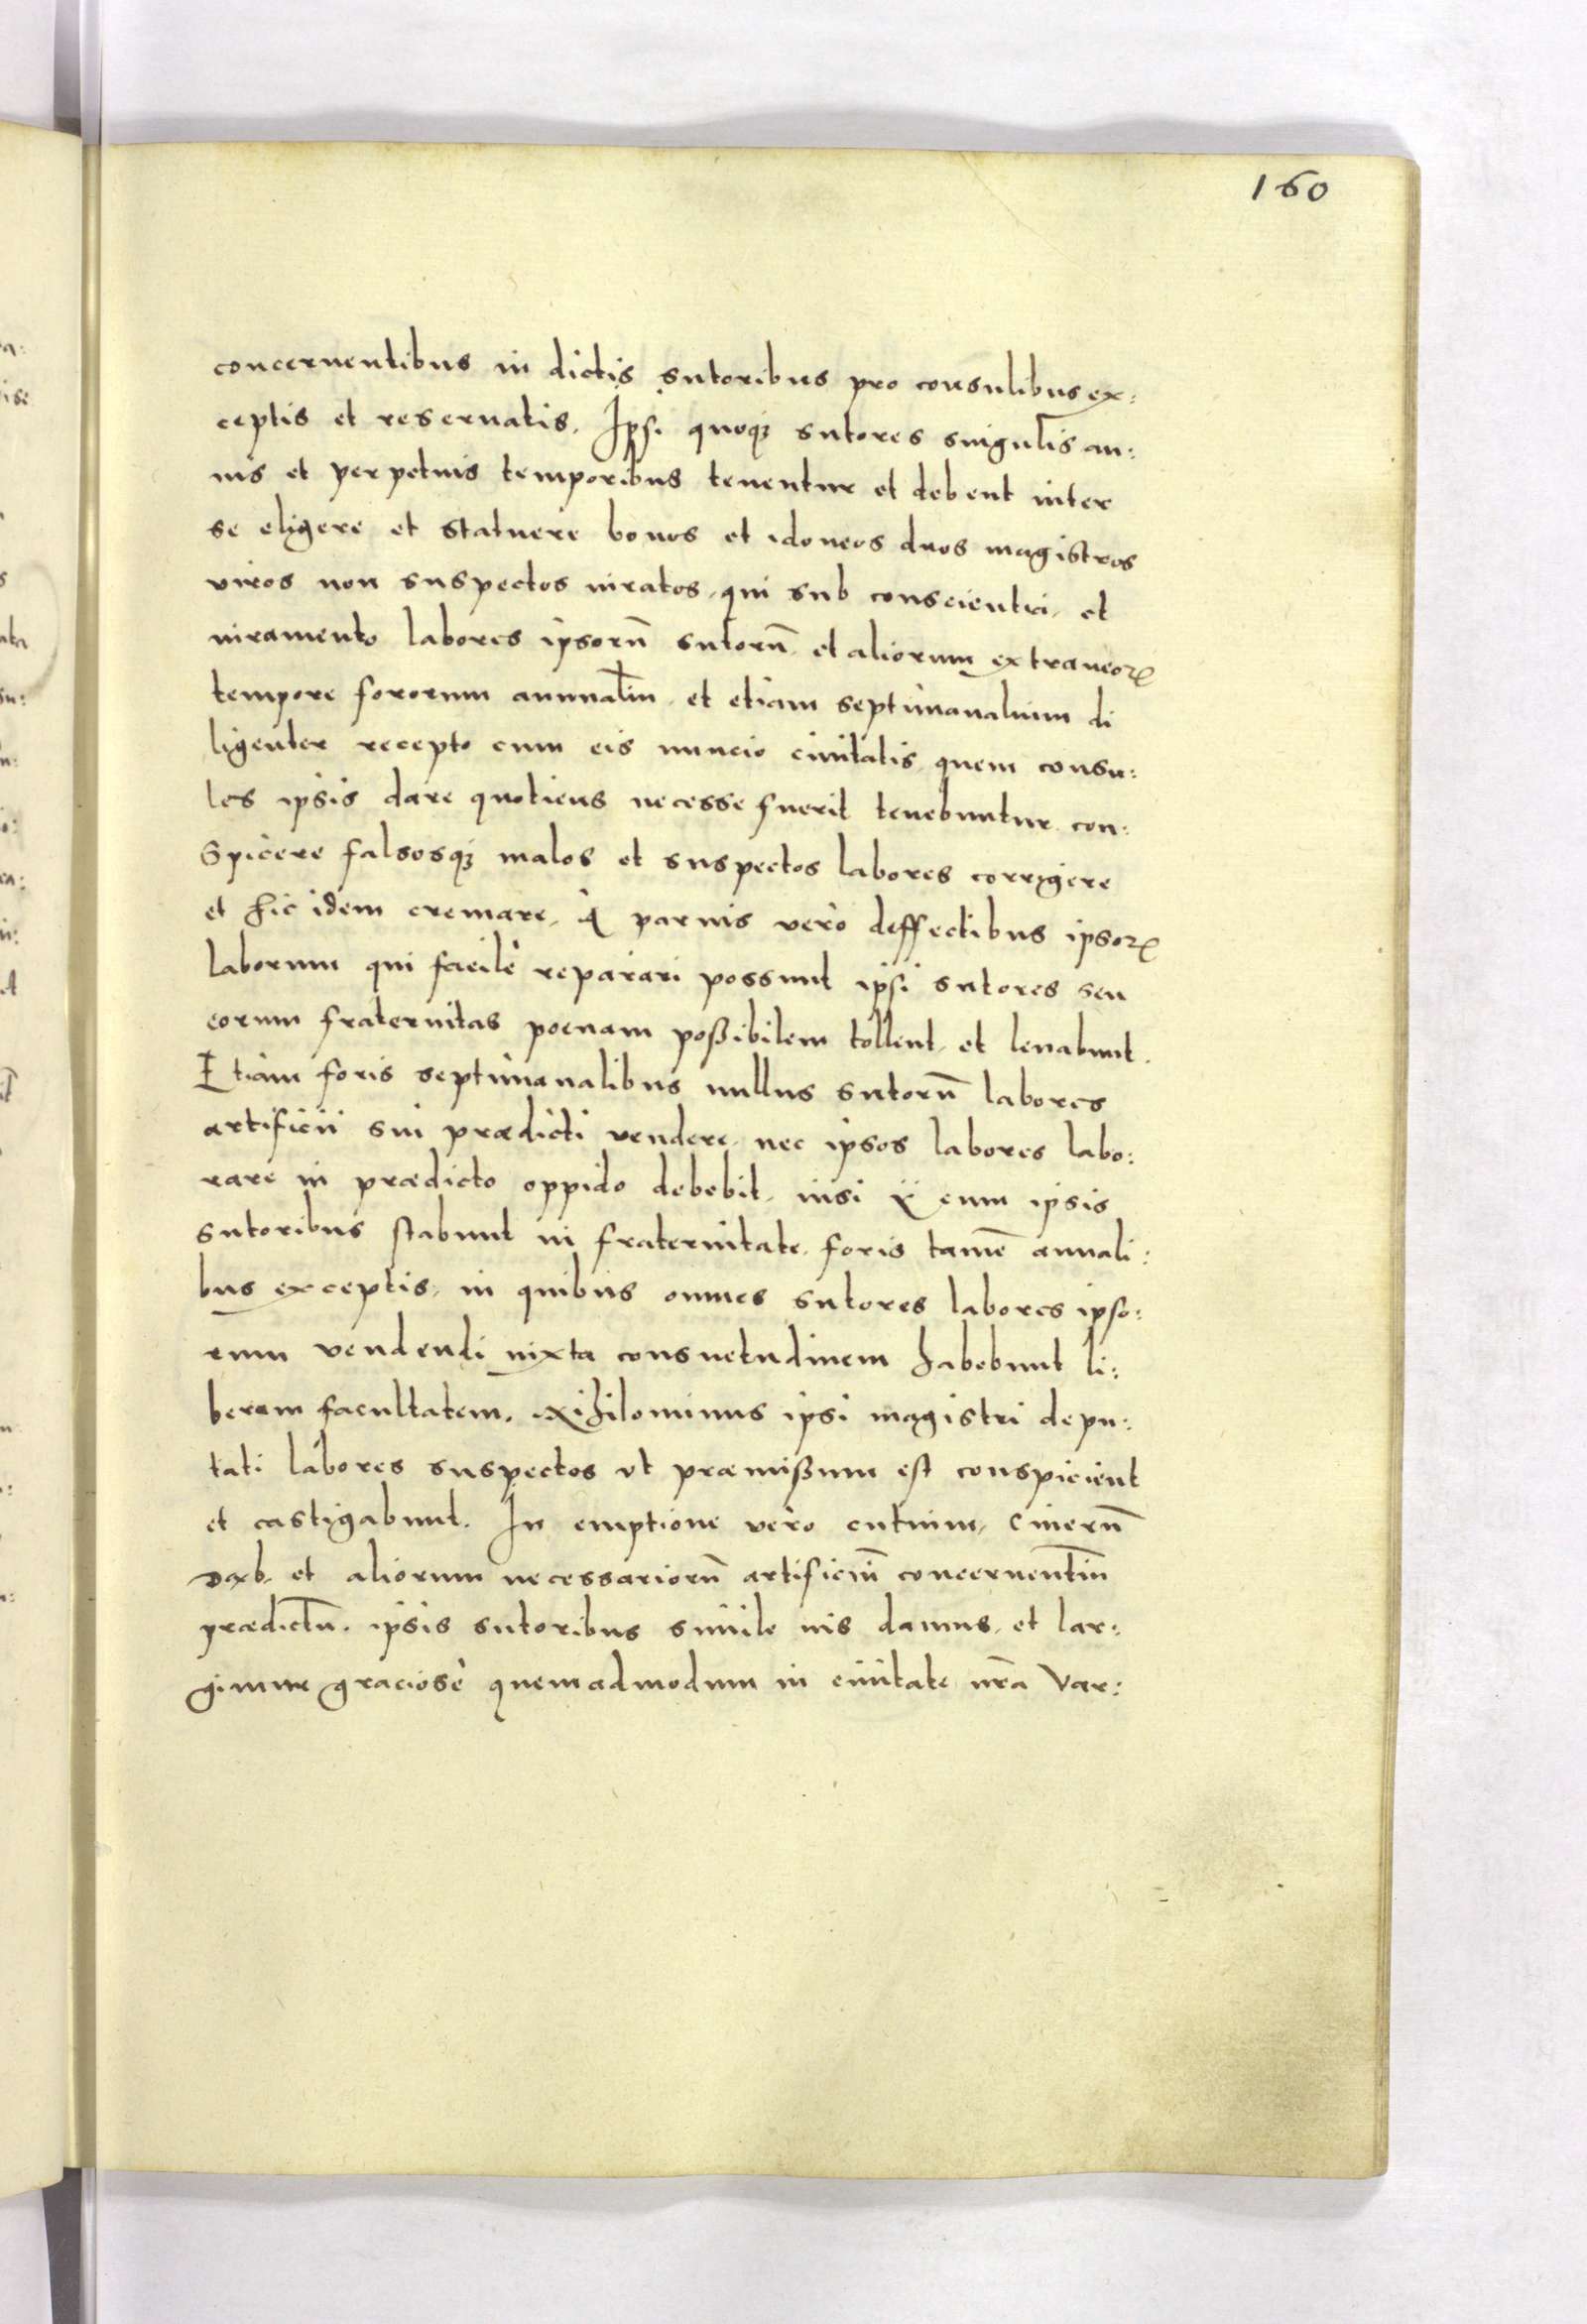 160
concernentibus in dictis sutoribus pro consulibus ex:
ceptis et reseruatis. Ipsi quoqꝫ sutores singulis an:
nis et perpetuis temporibus tenentur et debent inter
se eligere et statuere bonos et idoneos duos magistros
viros non suspectos iuratos, qui sub conscientia, et
iuramento labores ipsorū sutorū, et aliorum extraneoꝝ
tempore fororum annualiū, et etiam septimanalium di
ligenter recepto cum eis nuncio ciuitatis quem consu:
les ipsis dare quotiens necesse fuerit tenebuntur con:
spicere falsosqꝫ malos et suspectos labores corrigere
et hic idem cremare, A paruis vero deffectibus ipsoꝝ
laborum qui facilè reparari possunt ipsi sutores seu
eorum fraternitas poenam poßibilem tollent, et leuabunt.
Etiam foris septimanalibus nullus sutorū labores
artificii sui prædicti vendere, nec ipsos labores labo:
rare in prædicto oppido debebit, nisi cum ipsis
sutoribus stabunt in fraternitate, foris tamē annali:
bus exceptis, in quibus omnes sutores labores ipso:
rum vendendi iuxta consuetudinem habebunt li:
beram facultatem. Nihilominus ipsi magistri depu:
tati labores suspectos vt præmißum est conspicient
et castigabunt. In emptione vero cutium, cinerū
dąb, et aliorum necessariorū artificiū concernentiū
prædictū, ipsis sutoribus simile ius damus, et lar:
gimur graciosè quemadmodum in ciuitate nr̄a Var: